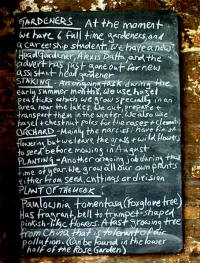 GARDENERS At the moment
we have 6 full time gardeners, and
a careership student. We have a new
Head Gardener, Alexis Datta, and the
advert has just gone out for new
assistant head gardener.
STAKING - An ongoing task during the
early summer months, we use hazel
pea sticks which we grow specially in an
area near the lakes. We cut, prepare &
transport them in the winter. We also use
hazel & chestnut poles for the roses & clematis
ORCHARD - Mainly the narcissi have finish
flowering but we leave the grass & wild flowers
to seed before mowing in August
PLANTING - Another ongoing job during this
time of year. We grow all our own plants
either from seed, cuttings or division
PLANT OF THE WEEK
Paulownia tomentosa (Foxglove tree)
Has fragrant, bell to trumpet-shaped
pinkish-lilac flowers. A fast growing tree
from China that is tolerant of air
pollution. (Can be found in the lower
half of the Rose Garden)